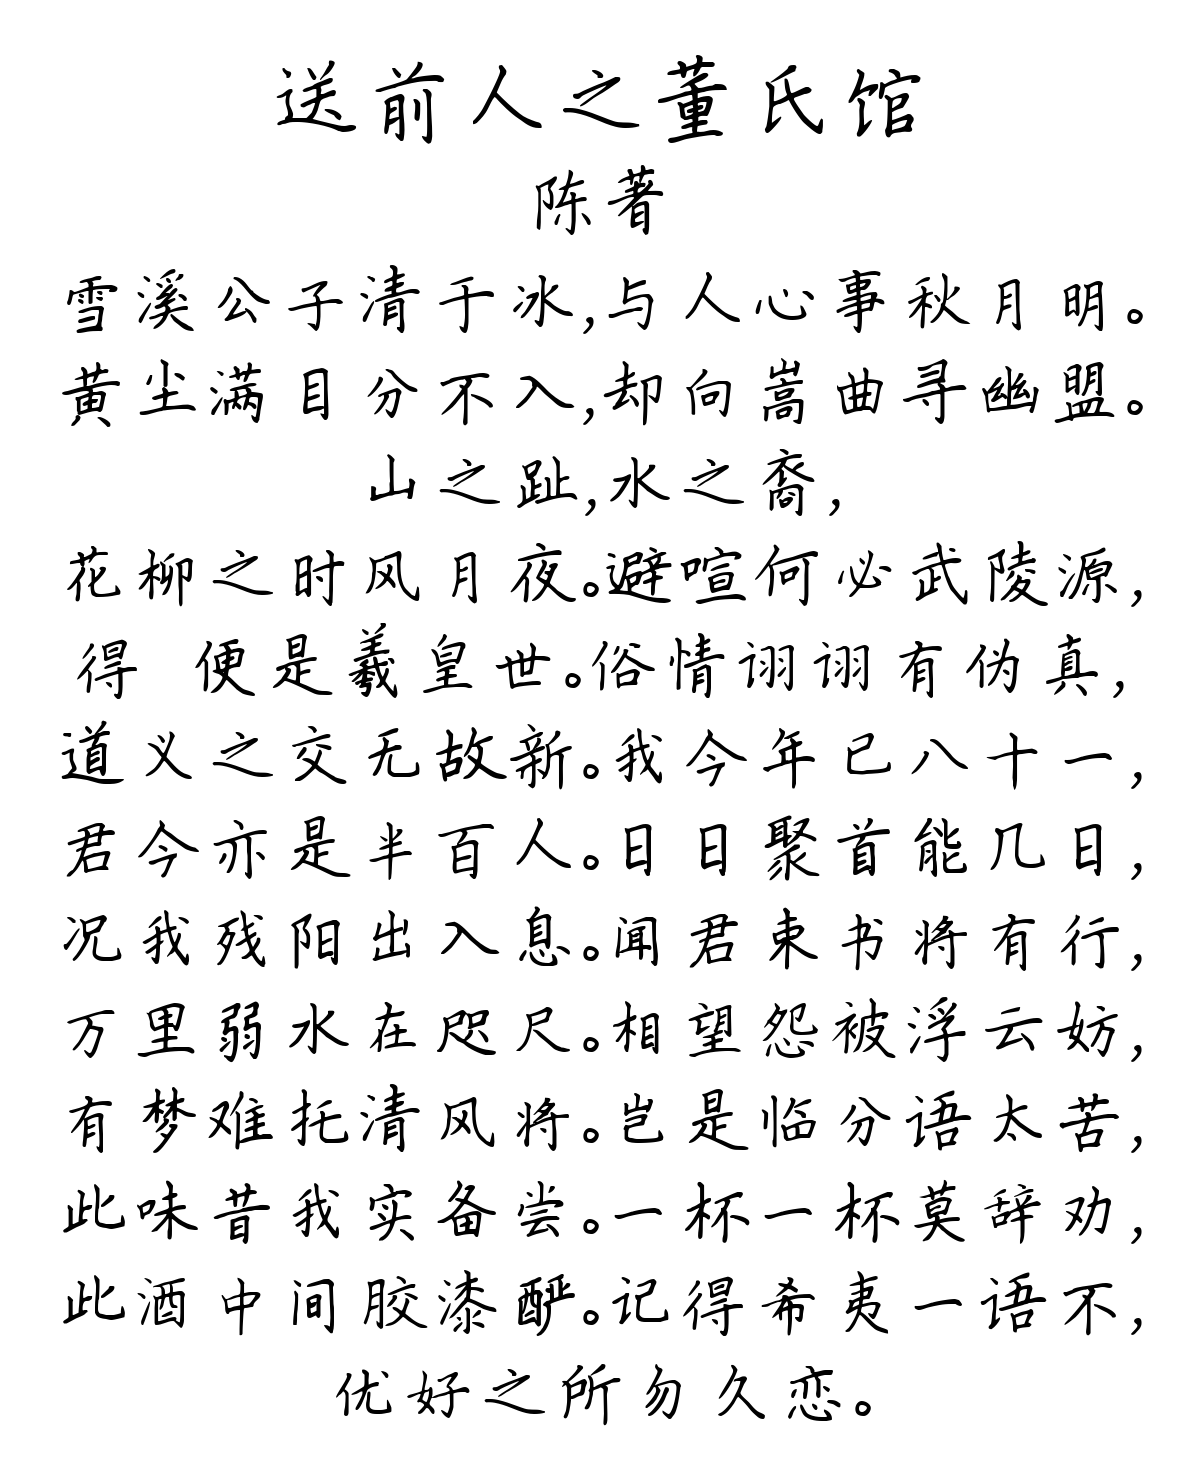 送前人之董氏馆
陈著
雪溪公子清于冰,与人心事秋月明。
黄尘满目分不入,却向嵩曲寻幽盟。
山之趾,水之裔,
花柳之时风月夜。避喧何必武陵源,
得 便是羲皇世。俗情诩诩有伪真,
道义之交无故新。我今年已八十一,
君今亦是半百人。日日聚首能几日,
况我残阳出入息。闻君束书将有行,
万里弱水在咫尺。相望怨被浮云妨,
有梦难托清风将。岂是临分语太苦,
此味昔我实备尝。一杯一杯莫辞劝,
此酒中间胶漆酽。记得希夷一语不,
优好之所勿久恋。